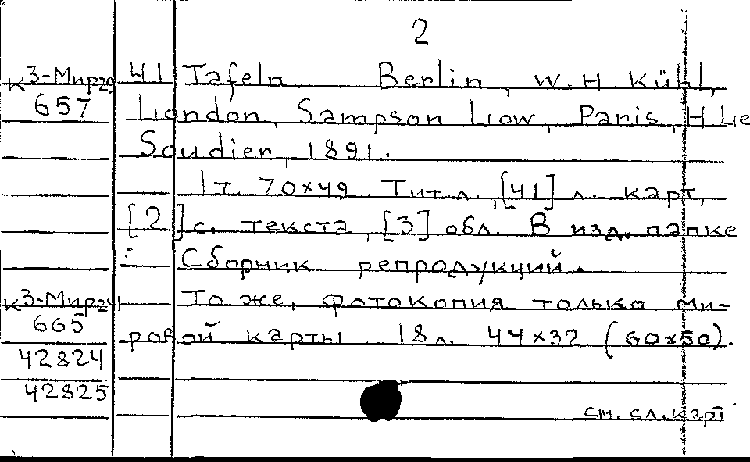 2
К3-Мир 41 Tafeln Berlin, W. H Kühl,
657 London, Sampson Low, Paris, H. Le
Soudier, 1891.
1 т. 70x49 Тит. л., [41] л. карт,
[2] с. текста, [3] обл. В изд. папке
Сборник репродукций.
К3-Мир То же, фотокопия только ми-
665 ровой карты 18 л. 44x32 (60x50).
42824
42825
см. сл. карт